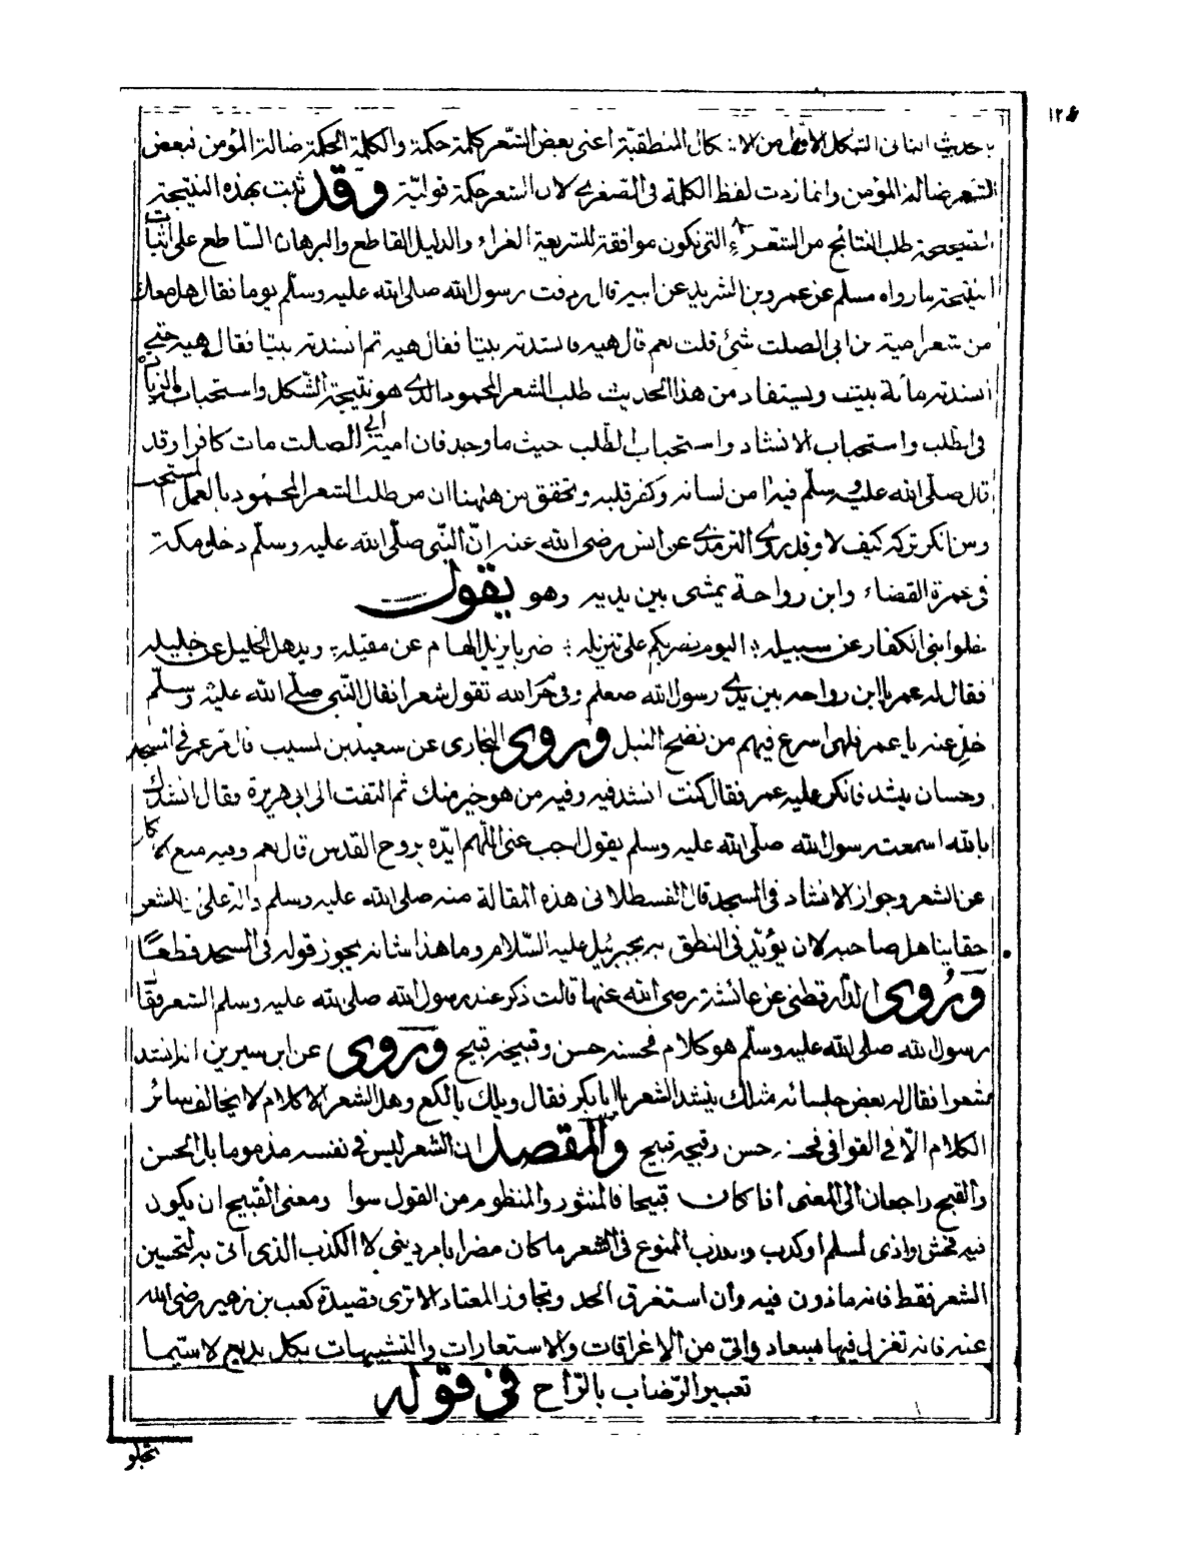 ١٢٤
الشكل الاول من الاشكال المنطقية اعنى بعض الشعر كلمة حكمة والكلمة الحكمة ضالة المؤمن فبعض
الشعر ضالة المؤمن وانما زدت لفظ الكلمة فى الصغرى لان الشعر حكمة قولية وقد ثبت بهذه النتيجة
الصحيحة طلب النتائج من الشعراء التى تكون موافقة للشريعة الغراء والدليل القاطع والبرهان الساطع على اثبات
النتيجة ما رواه مسلم عن عمرو بن الشريد عن ابيه قال ردفت رسول الله صلى الله عليه وسلم يوما فقال هل معك
من شعر امية بن ابى الصلت شئ قلت نعم قال هيه فانشدته بيتا فقال هيه ثم انشدته بيتا فقال هيه حتى
انشدته مائة بيت ويستفاد من هذا الحديث طلب الشعر المحمود الذى هو نتيجة الشكل واستحباب الزيادة
فى الطلب واستحباب الانشاد واستحباب الطلب حيث ما وجد فان امية ابن ابى الصلت مات كافرا وقد
قال صلى الله عليه وسلم فيه امن لسانه وكفر قلبه وتحقق من ههنا ان من طلب الشعر المحمود بالعمل المستحب
ومن انكر تركه كيف لا وقد روى الترمذى عن انس رضى الله عنه انّ النّبى صلّى الله عليه وسلّم دخل مكة
فى عمرة القضاء وابن رواحة يمشى بين يديه وهو يقول
خلوا بنى الكفار عن سبيله ؛ اليوم نضربكم على تنزيله ؛ ضربا يزيل الهام عن مقيله ؛ ويذهل الخليل عن خليله
فقال له عمر يا ابن رواحه بين يدى رسول الله صعلم وفى حرم الله تقول شعرا فقال النّبى صلّى الله عليه وسلّم
خلّ عنه يا عمر فلهى اسرع فيهم من نضح النبل وروى البخارى عن سعيد بن المسيب قال مر عمر فى المسجد
وحسان ينشد فانكر عليه عمر فقال كنت انشد فيه وفيه من هو خير منك ثم التفت الى ابى هريرة وقال انشدك
بالله اسمعت رسول الله صلّى الله عليه وسلم يقول اجب عنى اللّهم ايّده بروح القدس قال نعم وفيه منع الانكار
عن الشعر وجواز الانشاد فى المسجد قال القسطلانى هذه المقالة منه صلى الله عليه وسلم دالة على ان للشعر
حقا يتاهل صاحبه لان يؤيّد فى النطق به بجبرئيل عليه السّلام وما هذا شانه يجوز قوله فى المسجد قطعًا
وروى الدّار قطنى عن عائشة رضى الله عنها قالت ذكر عند رسول الله صلى الله عليه وسلم الشعر فقال
رسول الله صلى الله عليه وسلّم هو كلام فحسنه حسن وقبيحه قبيح وروى عن ابن سيرين انه انشد
شعرا فقال له بعض جلسائه مثلك ينشد الشعر يا ابا بكر فقال ويلك يا لكع وهل الشعر الا كلام لا يخالف سائر
الكلام الّا فى القوافى فحسنه حسن وقبيحه قبيح والمقصد ان الشعر ليس فى نفسه مذموما بل الحسن
والقبح راجعان الى المعنى اذا كان قبيحا فالمنثور والمنظوم من القول سوا ومعنى القبيح ان يكون
فيه فحش او اذى لمسلم او كذب والكذب الممنوع فى الشعر ما كان مضرا بامر دينى لا الكذب الذى اتى به لتحسين
الشعر فقط فانه ماذون فيه وان استغرق الحد وتجاوز المعتاد الا ترى قصيدة كعب بن زهير رضى الله
عنه فانه تغزل فيها بسعاد واتى من الاغراقات والاستعارات والتشبيهات بكل بديع لا سيّما
تعبير الرّضاب بالرّاح فى قوله
تجلو